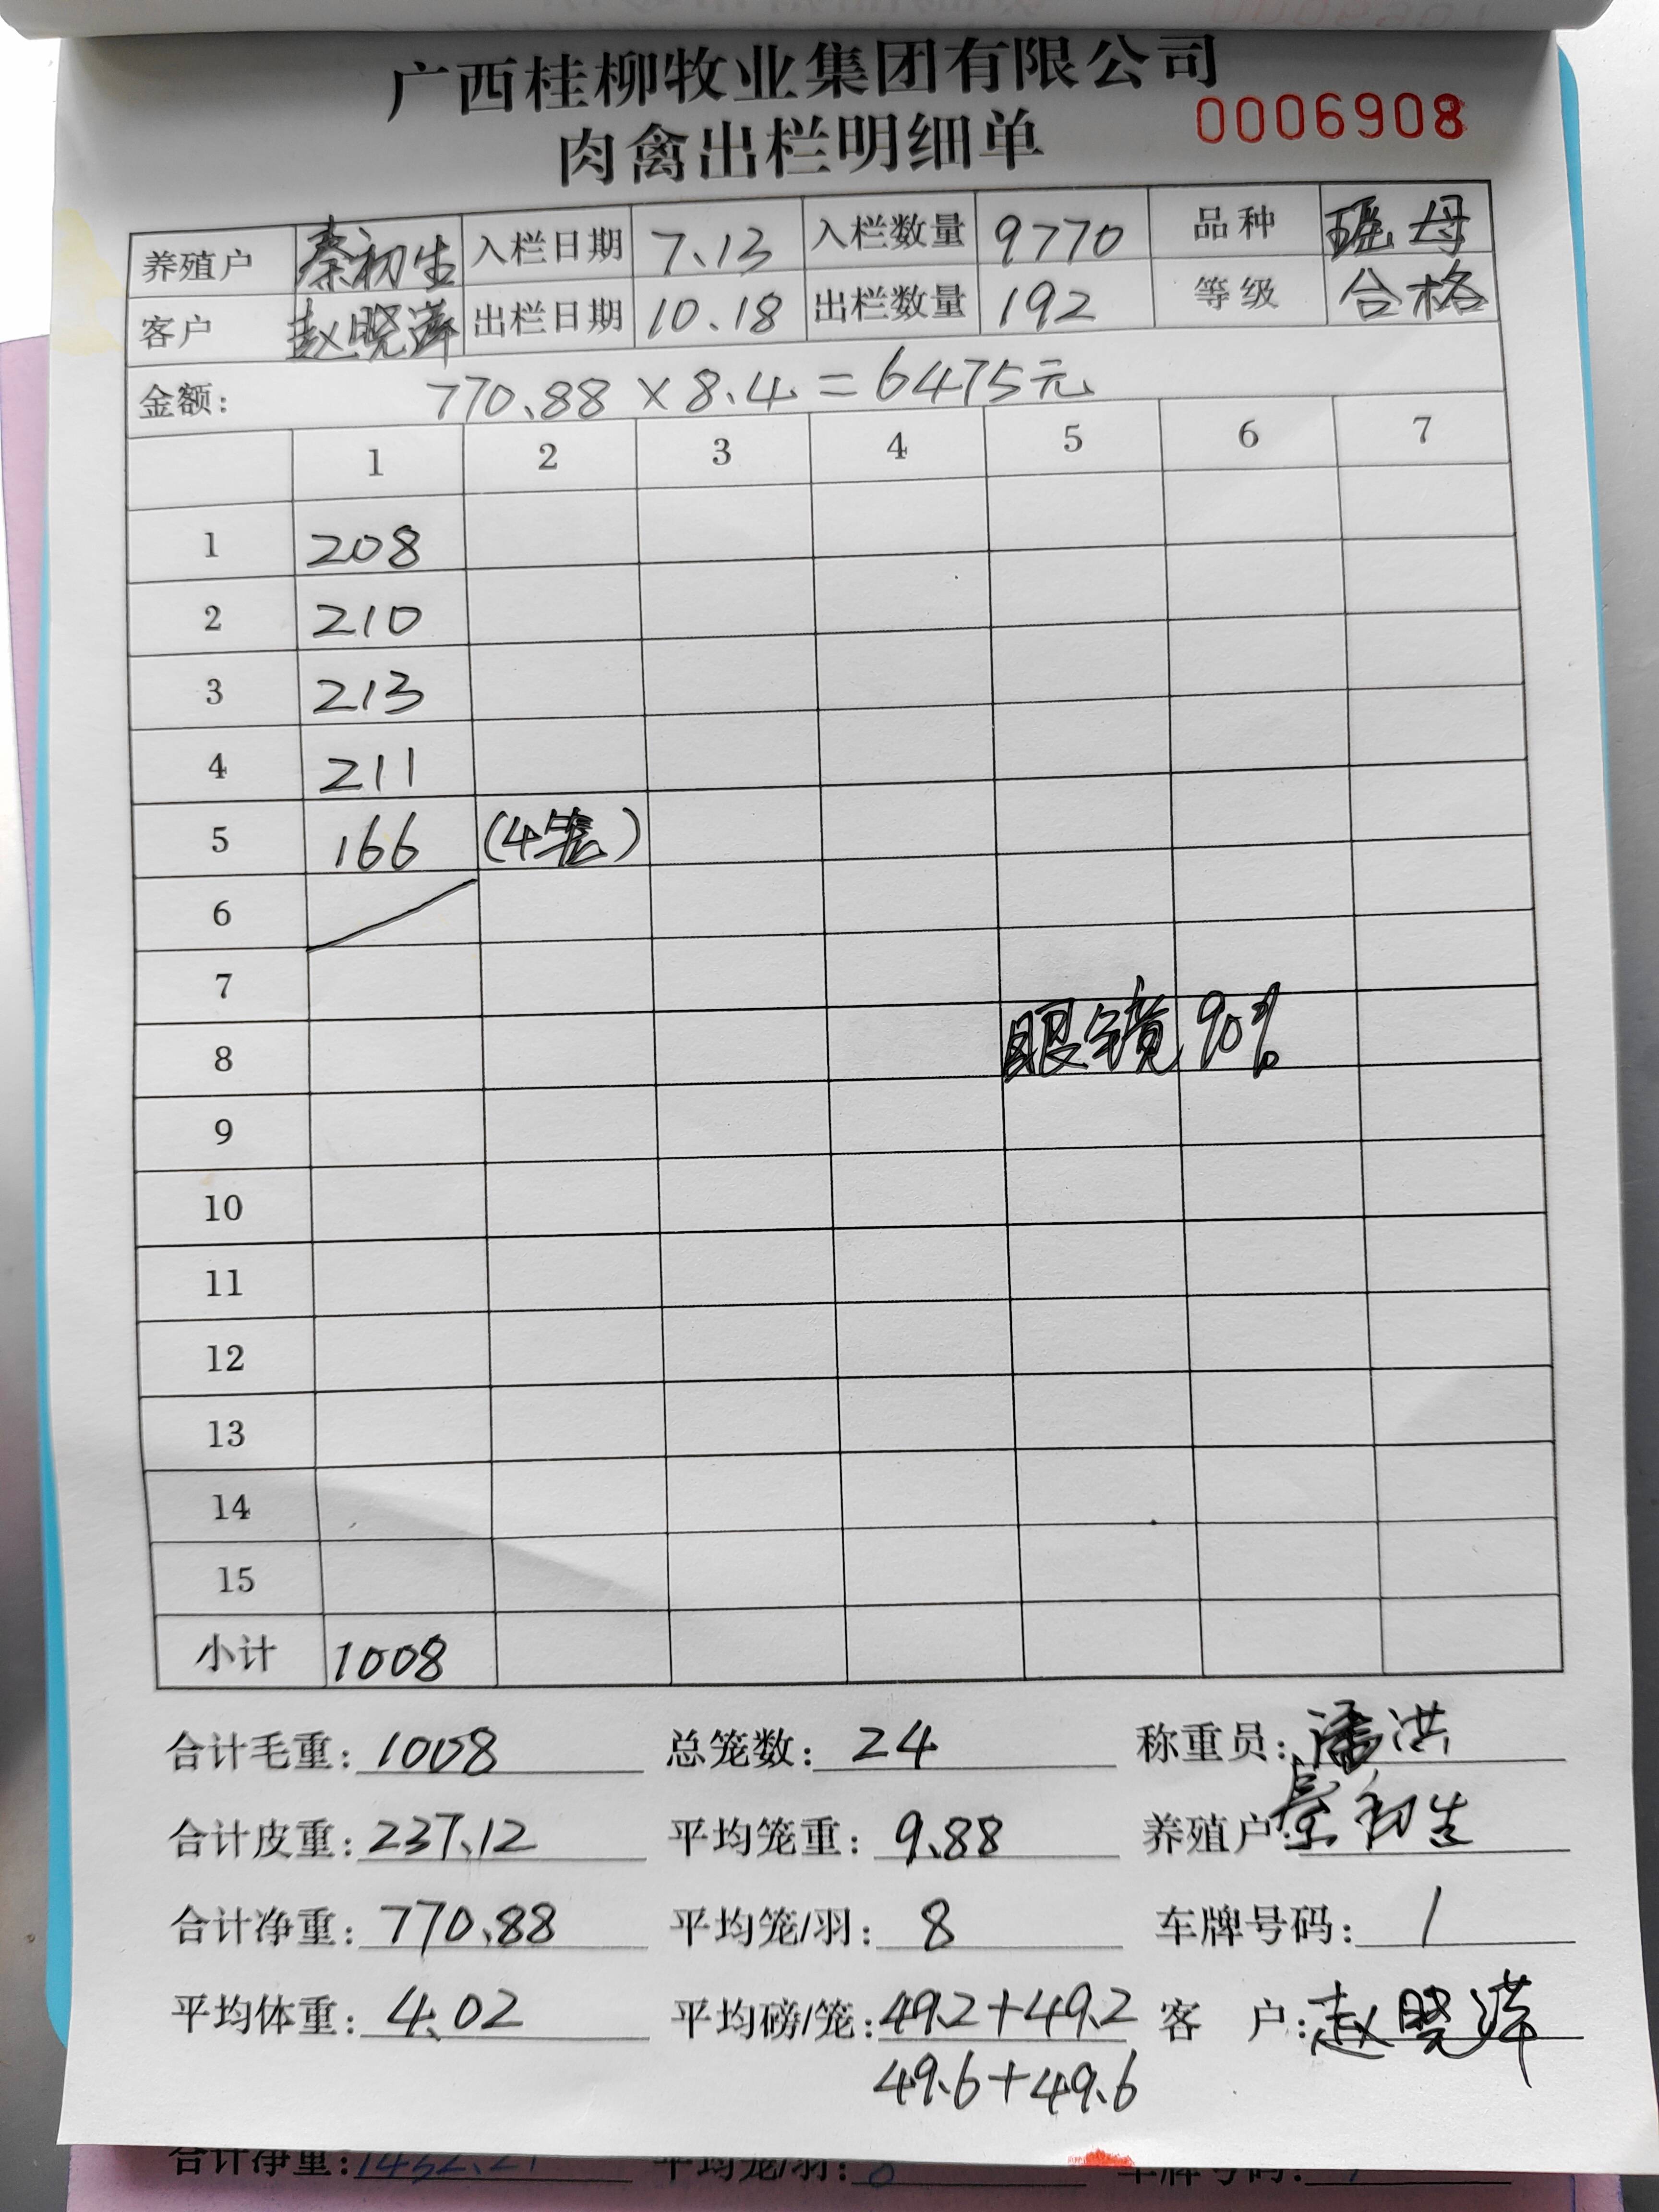 广西桂柳牧业集团有限公司
肉禽出栏明细单 0006908
养殖户 秦初生 入栏日期 7.13 入栏数量 9770 品种 瑶母
客户 赵晓萍 出栏日期 10.18 出栏数量 192 等级 合格
金额: 770.88×8.4=6475元
1 2 3 4 5 6 7
1 208
2 210
3 213
4 211
5 166 (4笼)
6
7
8 眼镜90%
9
10
11
12
13
14
15
小计 1008
合计毛重: 1008 总笼数: 24 称重员: 潘洪
合计皮重: 237.12 平均笼重: 9.88 养殖户: 秦初生
合计净重: 770.88 平均笼/羽: 8 车牌号码: 1
平均体重: 4.02 平均磅/笼: 49.2+49.2 客 户: 赵晓萍
49.6+49.6
合计净重: 1452.21 平均笼/羽: 车牌号码: